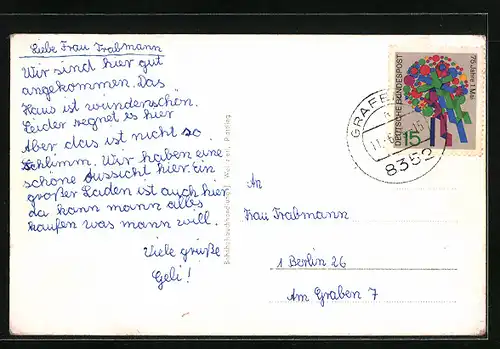 Liebe Frau Trabmann
Wir sind hier gut
angekommen. Das
Haus ist wunderschön.
Leider regnet es hier
Aber das ist nicht so
schlimm. Wir haben eine
schöne Aussicht hier. Ein
großer Laden ist auch hier
da kann mann alles
kaufen was mann will.
Viele grüße
Geli!
An
Frau Trabmann
1 Berlin 26
Am Graben 7
75 Jahre 1. Mai
DEUTSCHE BUNDESPOST
15
8352